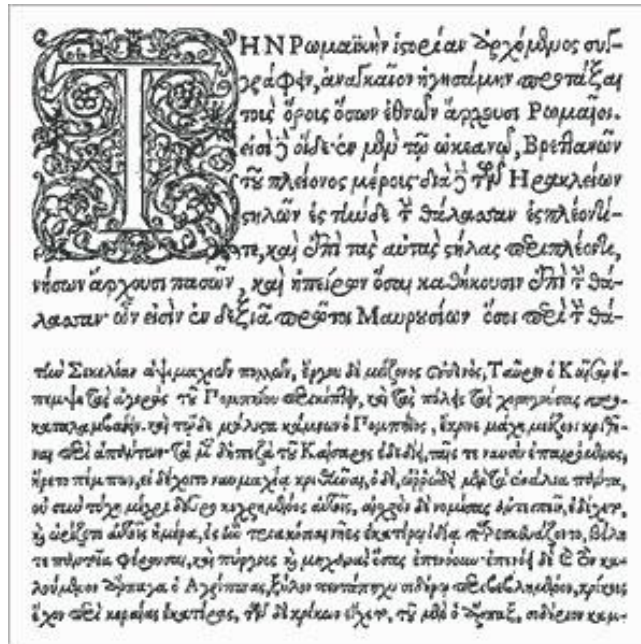 ΤΗΝ Ρωμαϊκὴν ἱστορίαν ἀρχόμενος συγ-
γράφειν, ἀναγκαῖον ἡγησάμην προτάξαι
τοὺς ὅρους ὅσων ἐθνῶν ἄρχουσι Ρωμαῖοι.
εἰσὶ δὲ οἵδε· ἐν μὲν τῷ ὠκεανῷ, Βρεττανῶν
τοῦ πλείονος μέρους· διὰ δὲ τῶν Ηρακλείων
στηλῶν ἐς τήνδε τὴν θάλασσαν ἐσπλέοντί-
τε, καὶ ἐπὶ τὰς αὐτὰς στήλας περιπλέοντι,
νήσων ἄρχουσι πασῶν, καὶ ἠπείρων ὅσαι καθήκουσιν ἐπὶ τὴν θά-
λασσαν· ὧν εἰσὶν ἐν δεξιᾷ πρῶτοι Μαυρουσίων ὅσοι περὶ τὴν θά-
τὴν Σικελίαν ἁψιμαχιῶν πολλῶν, ἔργου δὲ μείζονος οὐδενὸς, Ταῦρον ὁ Καῖσαρ ἔ-
πεμψε τὰς ἀγορὰς τοῦ Πομπηίου περικόπτειν, καὶ τὰς πόλεις τὰς χορηγούσας προ-
καταλαμβάνειν. καὶ τῷδε μάλιστα κάμνων ὁ Πομπήιος, ἔκρινε μάχῃ μείζονι κριθῆ-
ναι περὶ ἁπάντων· τὰ μὲν δὴ πεζὰ τοῦ Καίσαρος ἐδεδίει, ταῖς τε ναυσὶν ἐπαιρόμενος,
ἤρετο πέμπων, εἰ δέχοιτο ναυμαχίᾳ κριθῆναι, ὁ δὲ, ὠρρώδει μὲν τὰ ἐνάλια πάντα,
οὐ σὺν τύχῃ μέχρι δεῦρο κεχρημένος αὐτοῖς, αἰσχρὸν δὲ νομίσας ἀντειπεῖν, ἐδέχετο,
καὶ ὡρίζετο αὐτοῖς ἡμέρα, ἐς ἣν τριακόσιαι νῆες ἑκατέρων ἰδίᾳ παρεσκευάζοντο, βέλη
τε παντοῖα φέρουσαι, καὶ πύργους καὶ μηχανὰς ὅσας ἐπενόουν· ἐπενόει δὲ καὶ τὸν κα-
λούμενον ἅρπαγα ὁ Αγρίππας, ξύλον πεντάπηχυ σιδήρῳ περιβεβλημένον, κρίκους
ἔχον περὶ κεραίας ἑκατέρας, τῶν δὲ κρίκων εἴχετο, τοῦ μὲν ὁ ἅρπαξ, σιδήριον καμ-